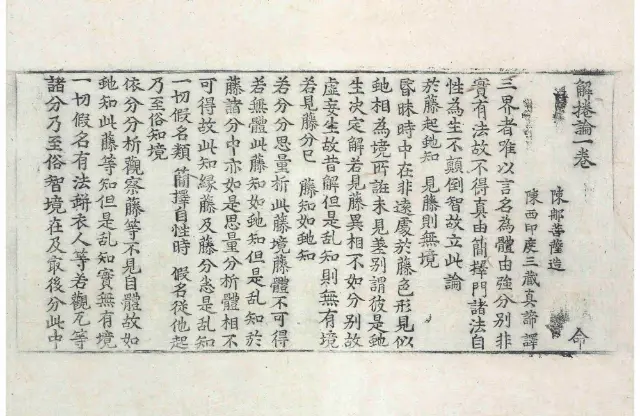 解捲論一卷 命
陳那菩薩造
陳西印度三藏真諦譯
三界者唯以言名為體由強分別非
實有法故不得真由簡擇門諸法自
性為生不顛倒智故立此論
於藤起虵知 見藤則無境
昏昧時中在非遠處於藤色形見似
虵相為境所誑未見差別謂彼是虵
生決定解若見藤異相不如分別故
虛妄生故昔解但是乱知則無有境
若見藤分已 藤知如虵知
若分分思量析此藤境藤體不可得
若無體此藤知如虵知但是乱知於
藤諸分中亦如是思量分析體相不
可得故此知緣藤及藤分悉是乱知
一切假名類 簡擇自性時 假名從他起
乃至俗知境
依分分析觀察藤等不見自體故如
虵知此藤等知但是乱知實無有境
一切假名有法缾衣人等若觀瓦等
諸分乃至俗智境在及最後分此中